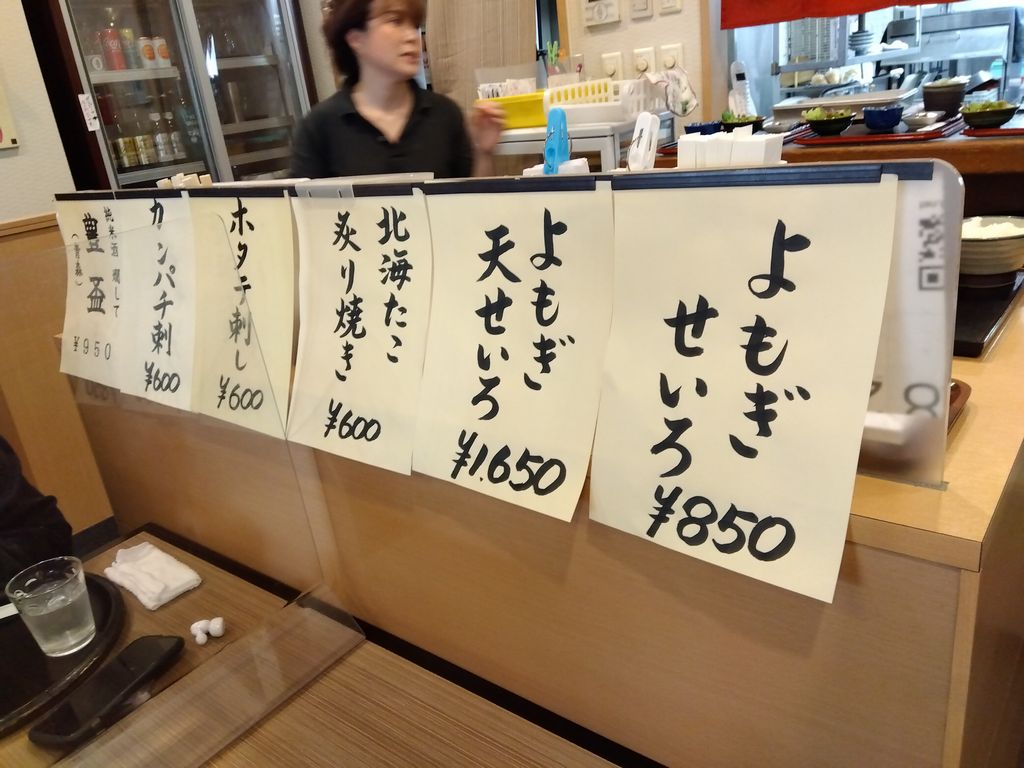 よもぎ
せいろ
¥850
よもぎ
天せいろ
¥1.650
北海たこ
炙り焼き
¥600
ホタテ刺し
¥600
カンパチ刺
¥600
純米酒 燗して
豊盃
(青森)
¥950